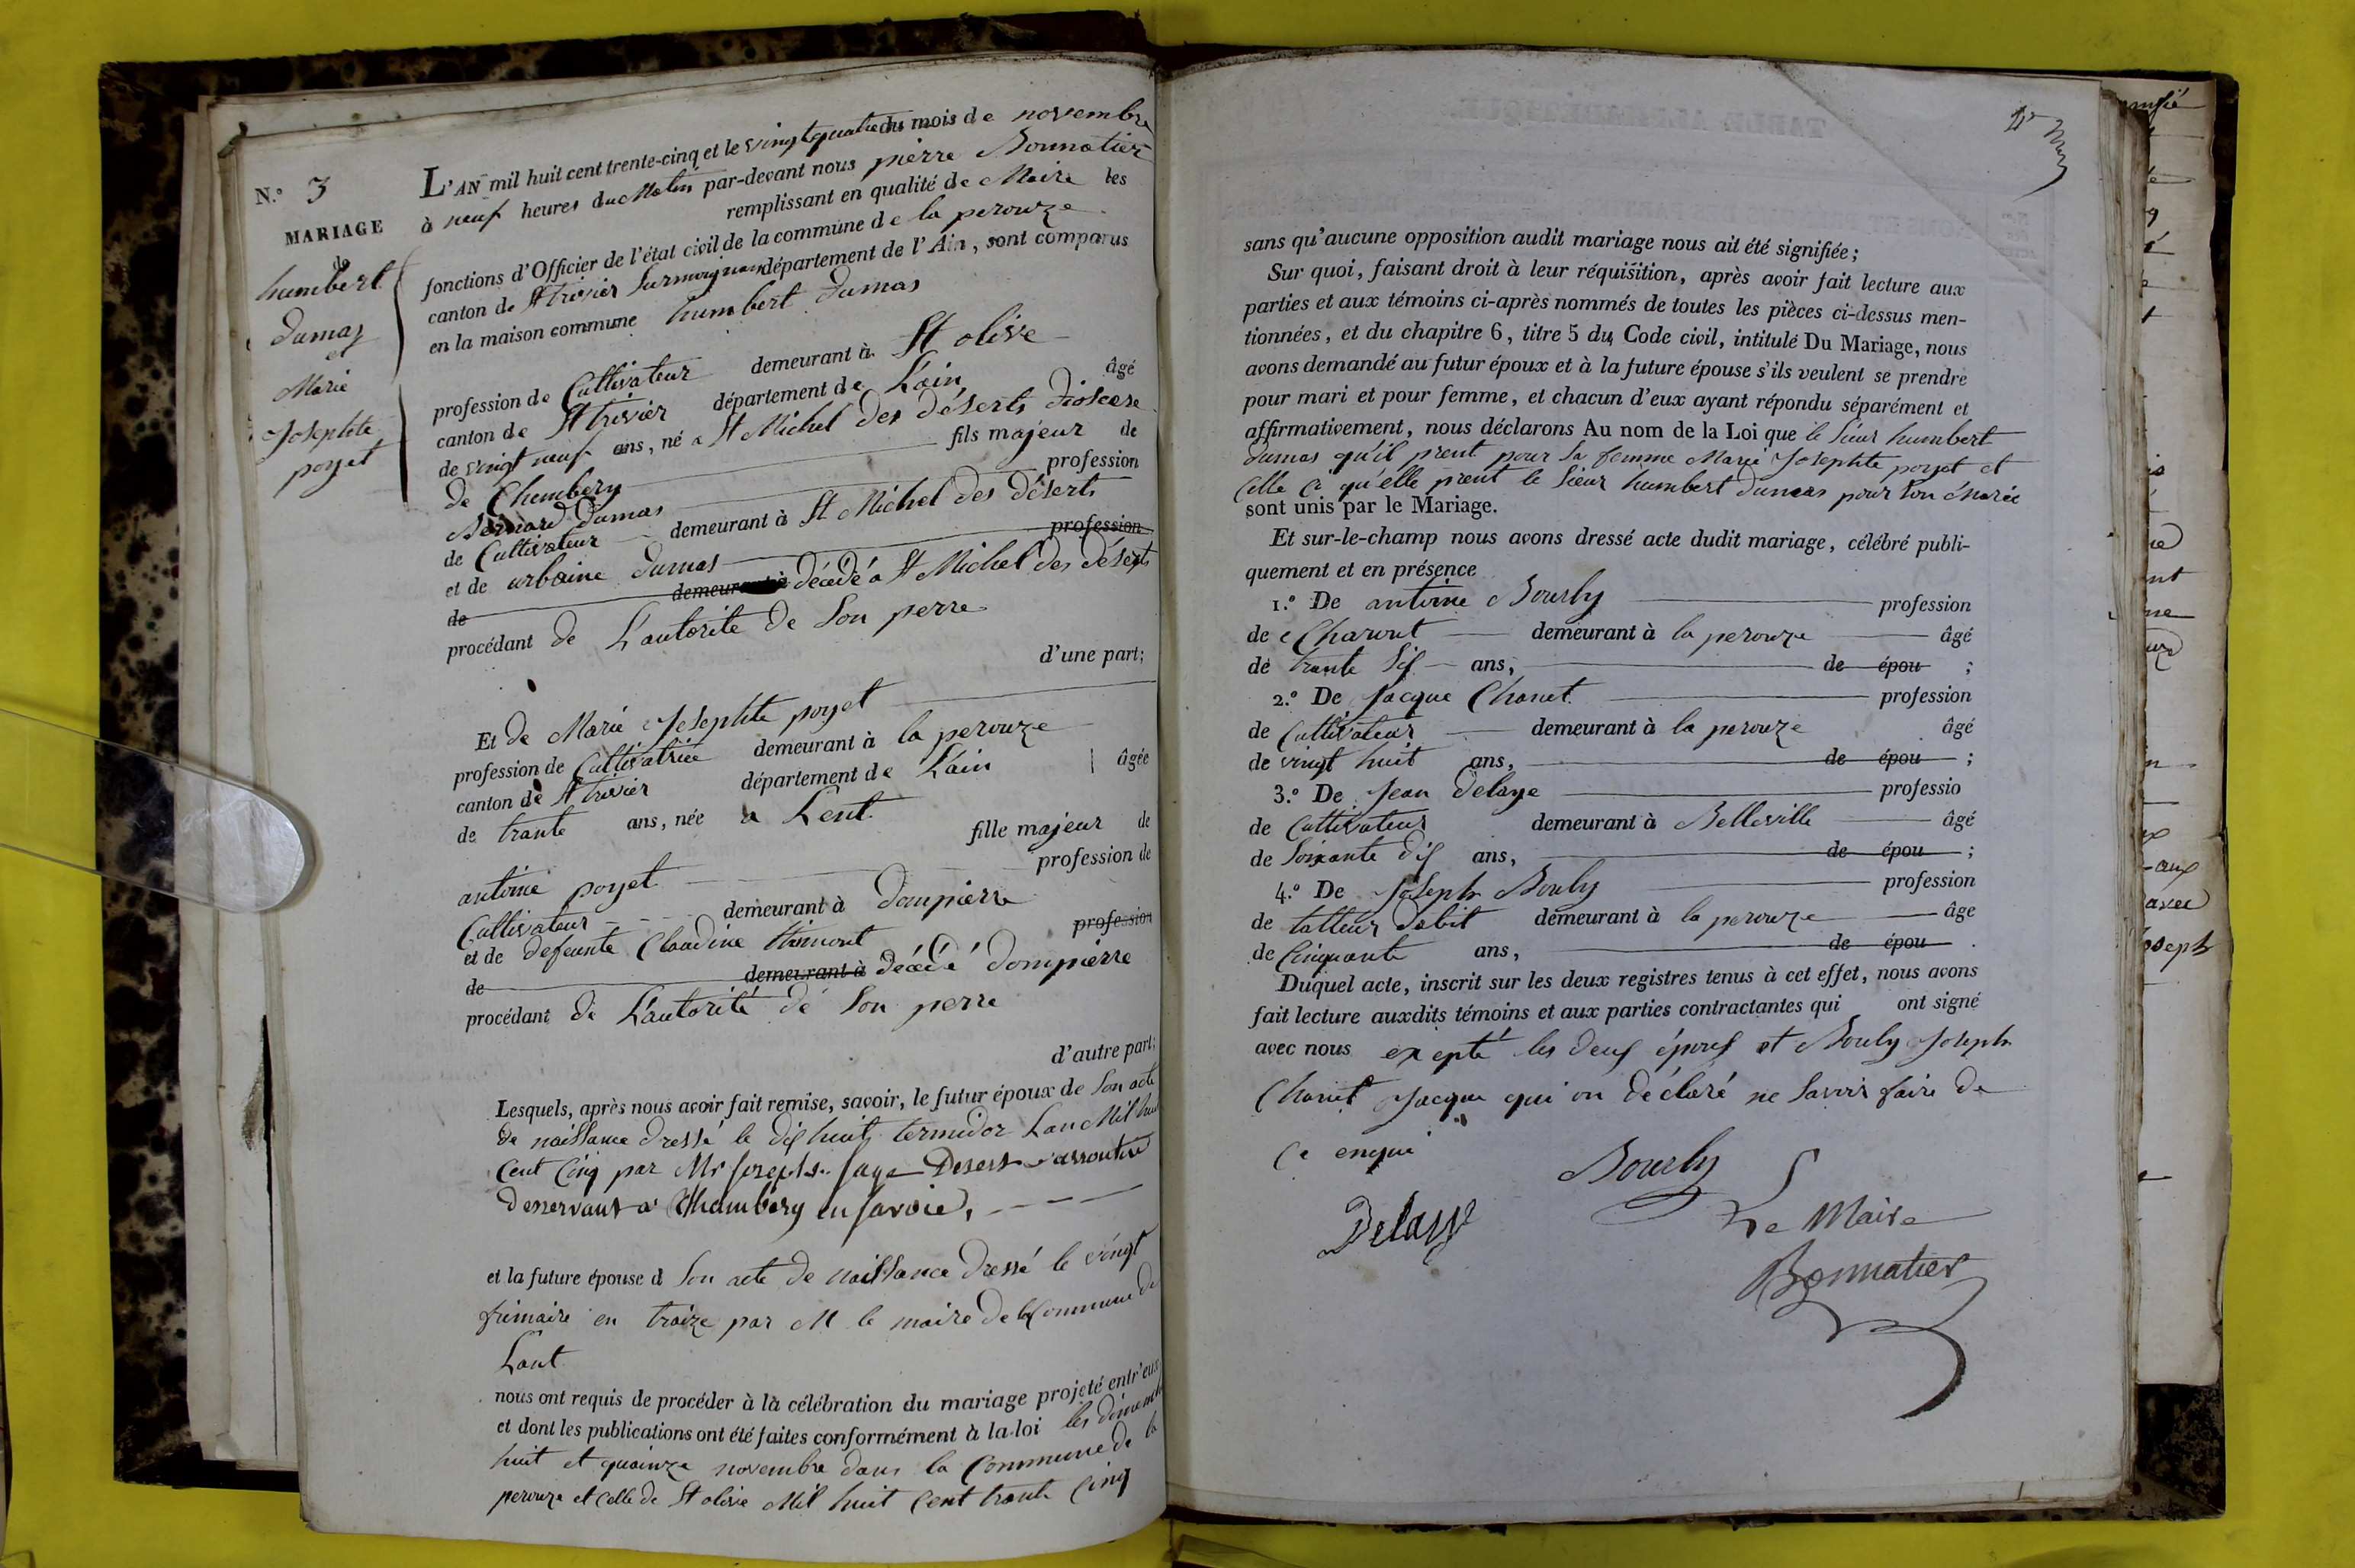 N.º 3
MARIAGE
de
humbert
dumas
et
Marie
Josephte
poyet
L'AN mil huit cent trente-cinq et le vingtquatre du mois de novembre
à neuf heures du Matin par-devant nous pierre Bonnatier
remplissant en qualité de Maire les
fonctions d'Officier de l'état civil de la commune de la perouze
canton de St trivier surmoignans département de l'Ain, sont comparus
en la maison commune humbert dumas
profession de Cultivateur demeurant à St olive
canton de St trivier département de L'ain âgé
de vingt neuf ans, né a St Michel des déserts diosese
de Chembery fils majeur de
Bernard dumas profession
de Cultivateur demeurant à St Michel des déserts
et de urbaine dumas profession
de demeurant à décédé a St Michel des déserts
procédant de L'autorite de son perre
d'une part;
Et de Marie Josephte poyet
profession de Cultivatrice demeurant à la perouze
canton de St trivier département de L'ain âgée
de trante ans, née a Lent
fille majeur de
antoine poyet profession de
Cultivateur demeurant à dompierre
et de defeunte Claudine profession
de demeurant à décédé dompierre
procédant de L'autorité de son perre
d'autre part;
Lesquels, après nous avoir fait remise, savoir, le futur époux de son acte
de naissance dressé le dix huit termidor Lan Mil huit
Cent Cinq par Mr Joseph
Desservant a Chambery en Savoie,
et la future épouse d son acte de naissance dressé le vingt
frimaire en traize par M le maire de la Commune de
Lant
nous ont requis de procéder à là célébration du mariage projeté entr'eux
et dont les publications ont été faites conformément à la loi les dimenche
huit et quainze novembre dans la Commune de la
perouze et celle de St olive Mil huit Cent trante Cinq
sans qu'aucune opposition audit mariage nous ait été signifiée;
Sur quoi, faisant droit à leur réquisition, après avoir fait lecture aux
parties et aux témoins ci-après nommés de toutes les pièces ci-dessus men-
tionnées, et du chapitre 6, titre 5 du Code civil, intitulé Du Mariage, nous
avons demandé au futur époux et à la future épouse s'ils veulent se prendre
pour mari et pour femme, et chacun d'eux ayant répondu séparément et
affirmativement, nous déclarons Au nom de la Loi que le sieur humbert
dumas qu'il prent pour sa femme Marie Josephte poyet et
celle ci qu'elle prent le sieur humbert dumas pour son
sont unis par le Mariage.
Et sur-le-champ nous avons dressé acte dudit mariage, célébré publi-
quement et en présence
1.º De antoine Bourly profession
de Charont demeurant à la perouze âgé
de trante six ans, de épou ;
2.º De Jacque Chanet profession
de Cultivateur demeurant à la perouze âgé
de vingt huit ans, de épou ;
3.º De Jean delaye professio
de Cultivateur demeurant à Belleville âgé
de soixante dix ans, de épou ;
4.º De Joseph Bouly profession
de talleur dabit demeurant à la perouze âge
de Cinquante ans, de épou .
Duquel acte, inscrit sur les deux registres tenus à cet effet, nous avons
fait lecture auxdits témoins et aux parties contractantes qui ont signé
avec nous exepté les deux époux et Bouly Joseph
Chanet Jacque qui on déclaré ne savoir faire de
Ce enqui
Bourly
Delaye
Le Maire
Bonnatier